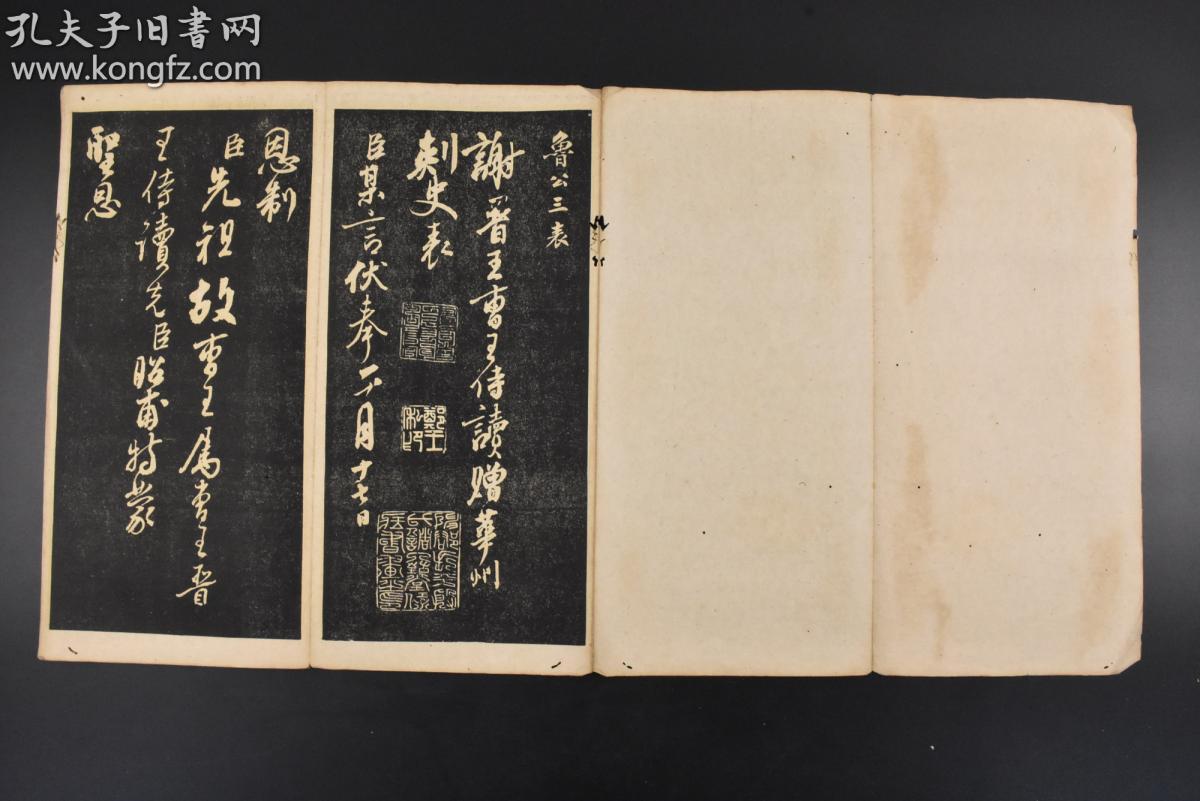 孔夫子旧书网
www.kongfz.com
魯公三表
謝晉王曹王侍讀贈華州
刺史表
臣某言伏奉一月十七日
恩制
臣先祖故曹王屬曹王晉
王侍讀先臣昭甫特蒙
聖恩